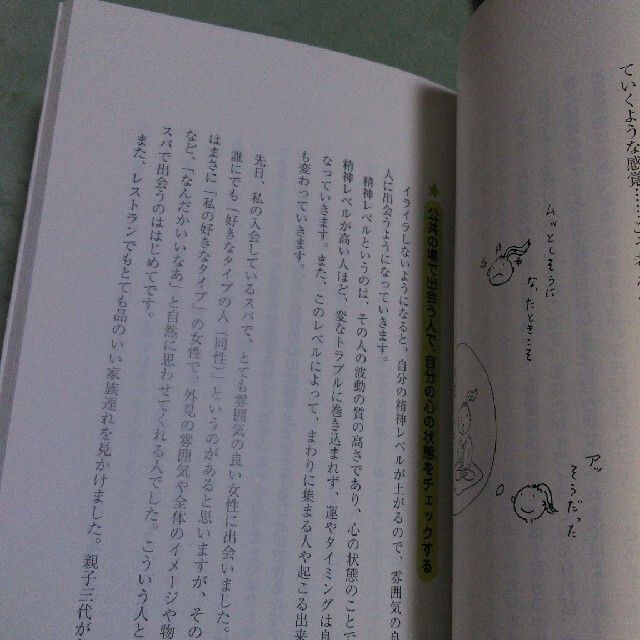 ていくような感覚……
ムッとしそうに
なったときこそ
アッ
そうだった
公共の場で出会う人で、自分の心の状態をチェックする
イライラしないようになると、自分の精神レベルが上がるので、雰囲気の良
人に出会うようになっていきます。
精神レベルというのは、その人の波動の質の高さであり、心の状態のことで
精神レベルが高い人ほど、変なトラブルに巻き込まれず、運やタイミングは良
なっていきます。また、このレベルによって、まわりに集まる人や起こる出来
も変わっていきます。
先日、私の入会しているスパで、とても雰囲気の良い女性に出会いました。
誰にでも「好きなタイプの人（同性）」というのがあると思いますが、その
はまさに「私の好きなタイプ」の女性で、外見の雰囲気や全体のイメージや物
など、「なんだかいいなあ」と自然に思わせてくれる人でした。こういう人と
スパで出会うのははじめてです。
また、レストランでもとても品のいい家族連れを見かけました。親子三代が